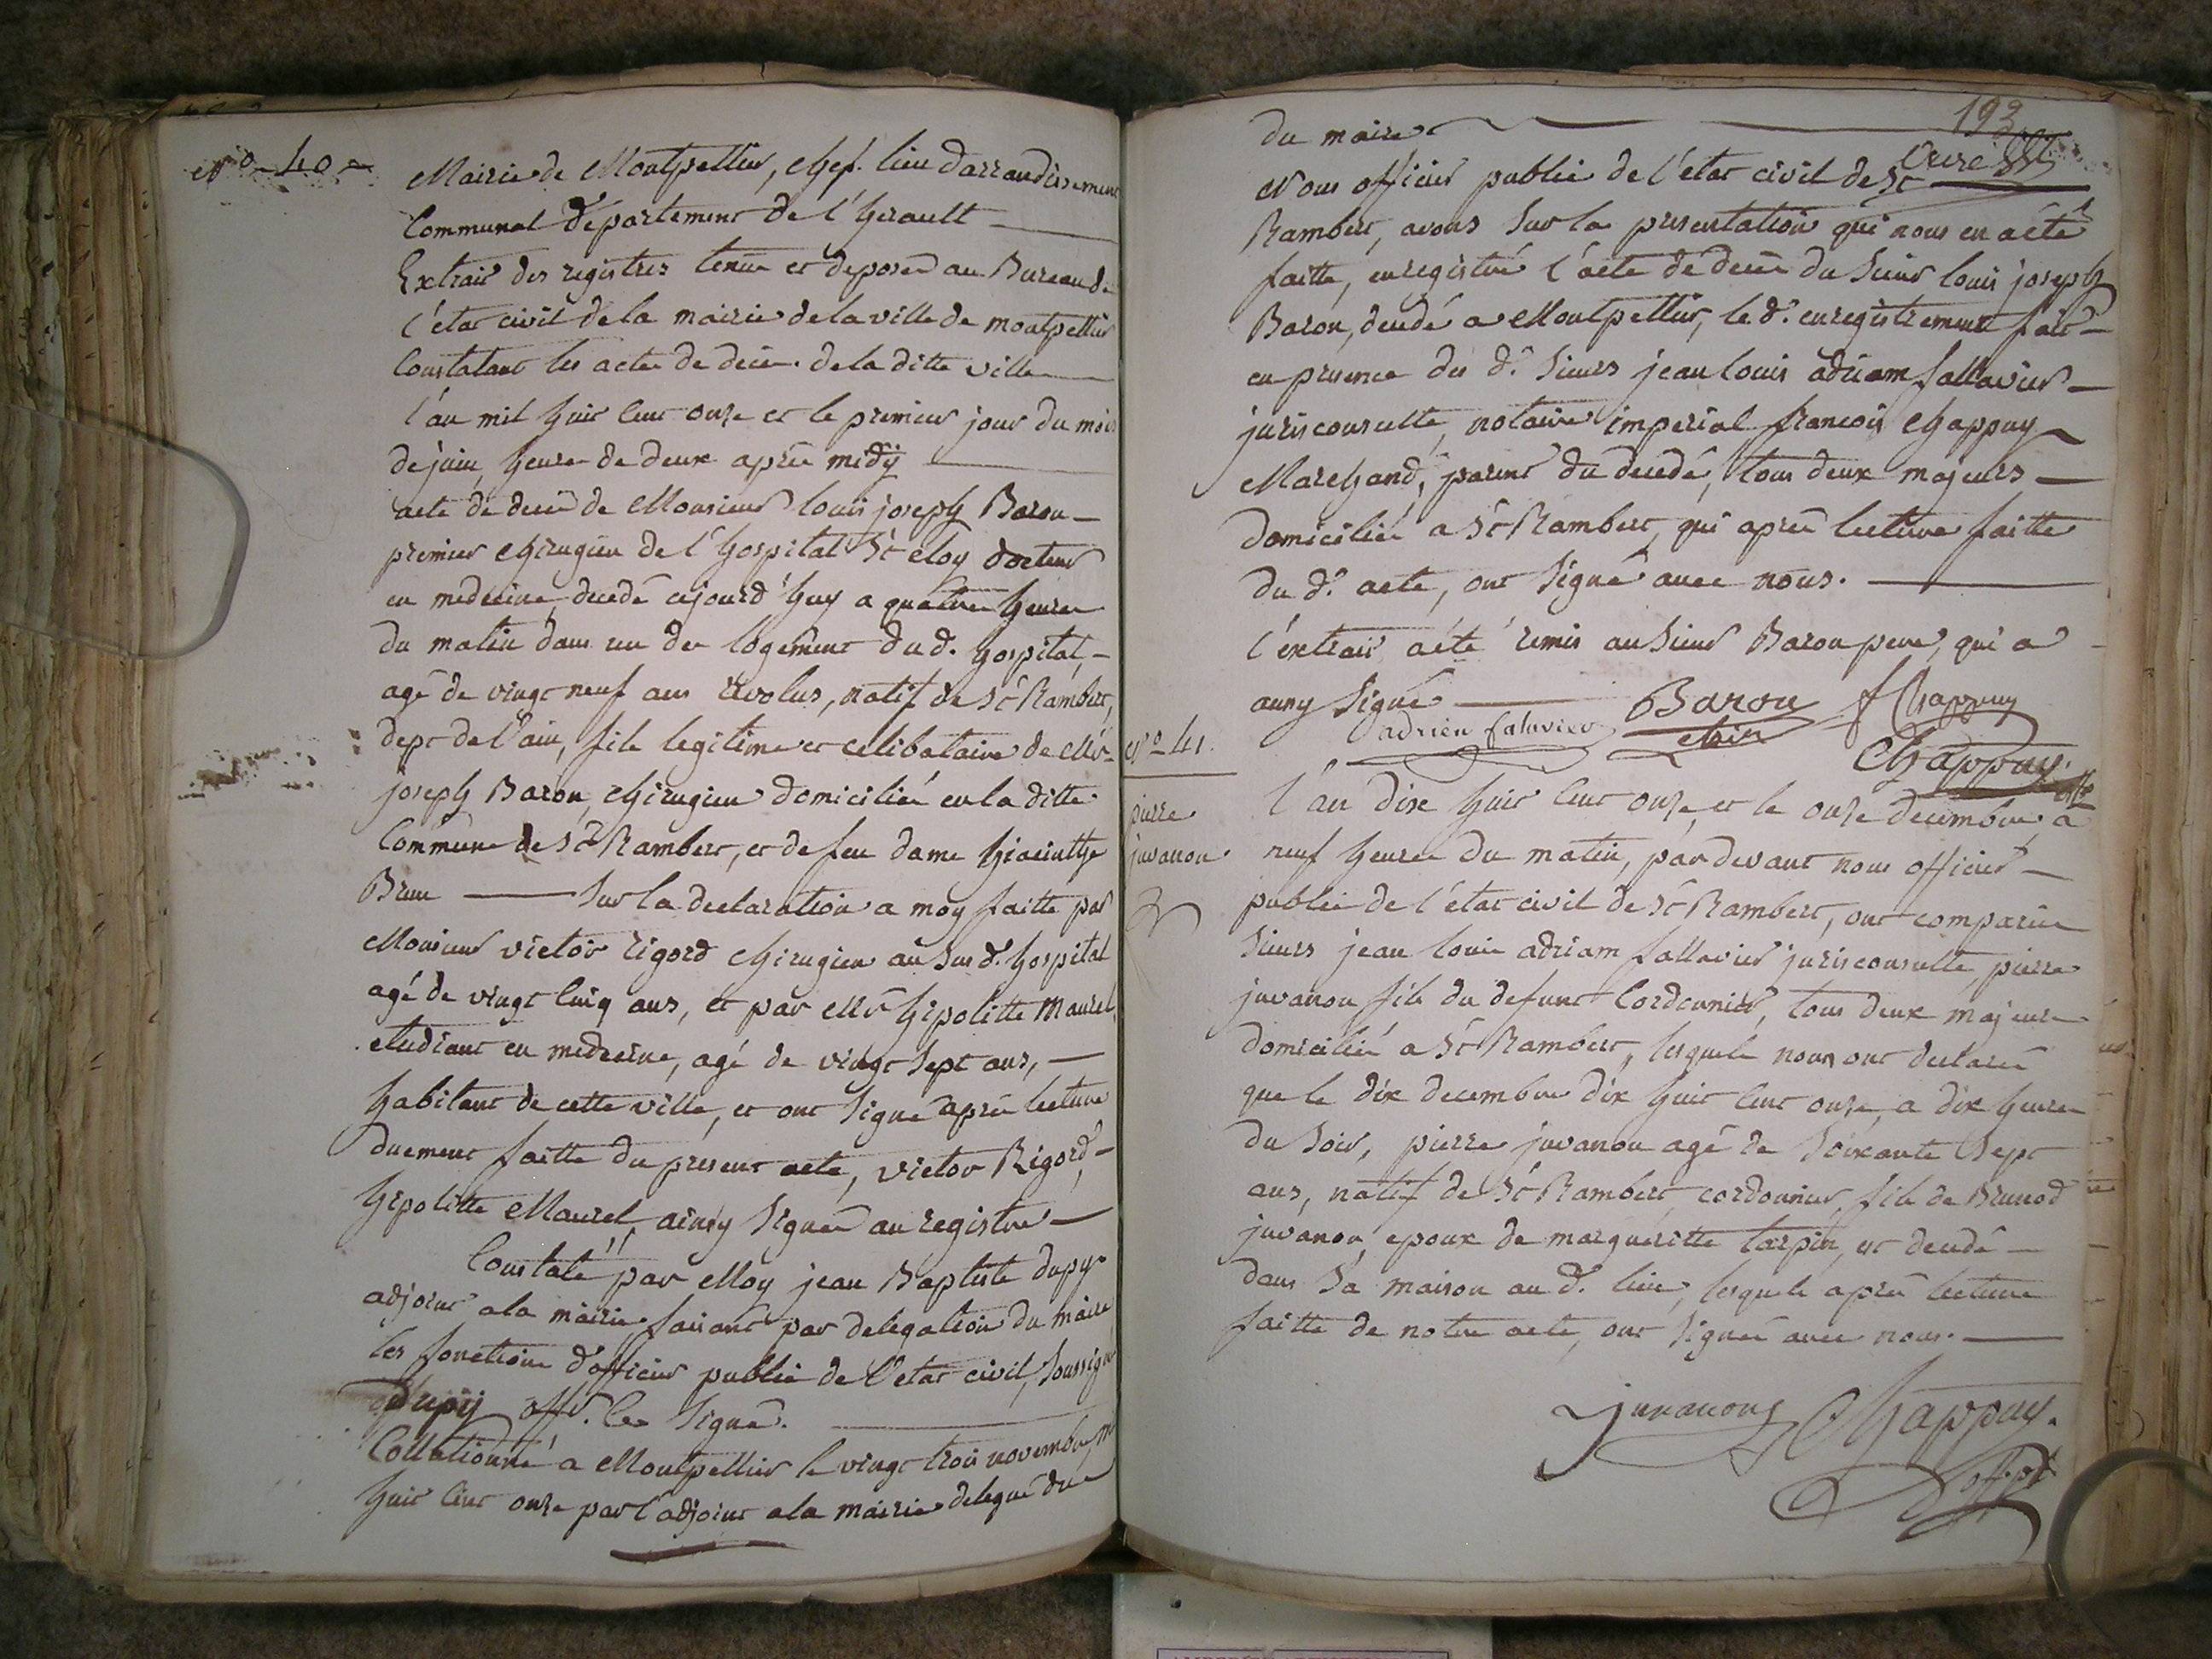 N.o 40
Mairie de Montpellier, chef. lieu darrandissement
Communal departement de l'herault
Extrait des registres tenüe et deposés au Bureau de
l'état civil de la mairie de la ville de montpellier
Constatant les actes de décès de la ditte ville
l'an mil huit cent onze et le premier jour du mois
de juin, heure de deux après midÿ
acte de decès de Monsieur louis joseph Baron
premier chirugien de l'hospital St eloy docteur
en medecine, decedé cejourd'huy a quatre heures
du matin dans un des logement du d. hospital,
agé de vingt neuf ans revolus, natif de St Rambert,
dept de l'ain, fils legitime et celibataire de Mr
joseph Baron, chirugien domicilié en la ditte
Commune de St Rambert, et de feu dame hiacinthe
Brun sur la declaration a moy faitte par
Monsieur victor rigord chirugien au sus d. hospital
agé de vingt cinq ans, et par Mr hipolitte Maurel
etudiant en medecine, agé de vingt sept ans,
habitant de cette ville, et ont signé après lecture
duement faitte du present acte, victor Rigord,
hipolitte Maurel, ainsy signés au registre
Constaté par Moy jean Baptiste dupy
adjoint a la mairie, faisant par delegation du maire
les fonctions d'officier public de l'état civil, soussigné
dupÿ signé.
Collationné a Montpellier le vingt trois novembre, m
huit cent onze par l'adjoint a la mairie delegué du
193
du maire
Nous officier public de l'état civil de St
Rambert, avons sur la presentation qui nous en a été
faitte, enregistré l'acte de decès du sieur louis joseph
Baron, decedé a Montpellier, le d. enregistrement fait
en presence des d. sieurs jean louis adriam fallavier
jurisconsulte, notaire imperial françois chappuy
Marchand, parent du decedé, tous deux majeurs
domiciliés a St Rambert, qui après lecture faitte
du d. acte, ont signé avec nous.
l'extrait a été remis au sieur Baron pere, qui a
ausy signé
Baron
f Chappuy
adrien falavier
chir
Chappuy.
N.o 41.
pierre
juvanon
l'an dix huit cent onze, et le onze decembre, a
neuf heures du matin, par devant nous officier
public de l'état civil de St Rambert, ont comparus
sieurs jean louis adriam fallavier jurisconsulte, pierre
juvanon fils du defunt cordonnier, tous deux majeurs
domiciliés a St Rambert, lesquels nous ont declarés
que le dix decembre dix huit cent onze, a dix heures
du soir, pierre juvanon agé de soixante sept
ans, natif de St Rambert cordonnier, fils de Brunod
juvanon, epoux de margueritte tarpin, est decedé
dans sa maison au d. lieu, lesquels après lecture
faitte de notre acte, ont signés avec nous.
juvanon
Chappuy.